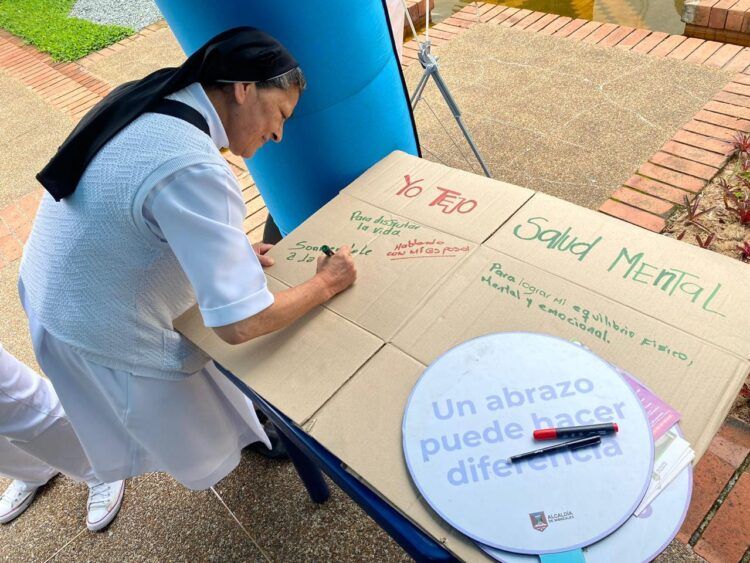 Yo TeJo
Para disfrutar
la vida
Hablando
con mi esposo!
Salud Mental
Para lograr mi equilibrio físico,
Mental y emocional.
Un abrazo
puede hacer
diferencia
ALCALDÍA
DE MANIZALES